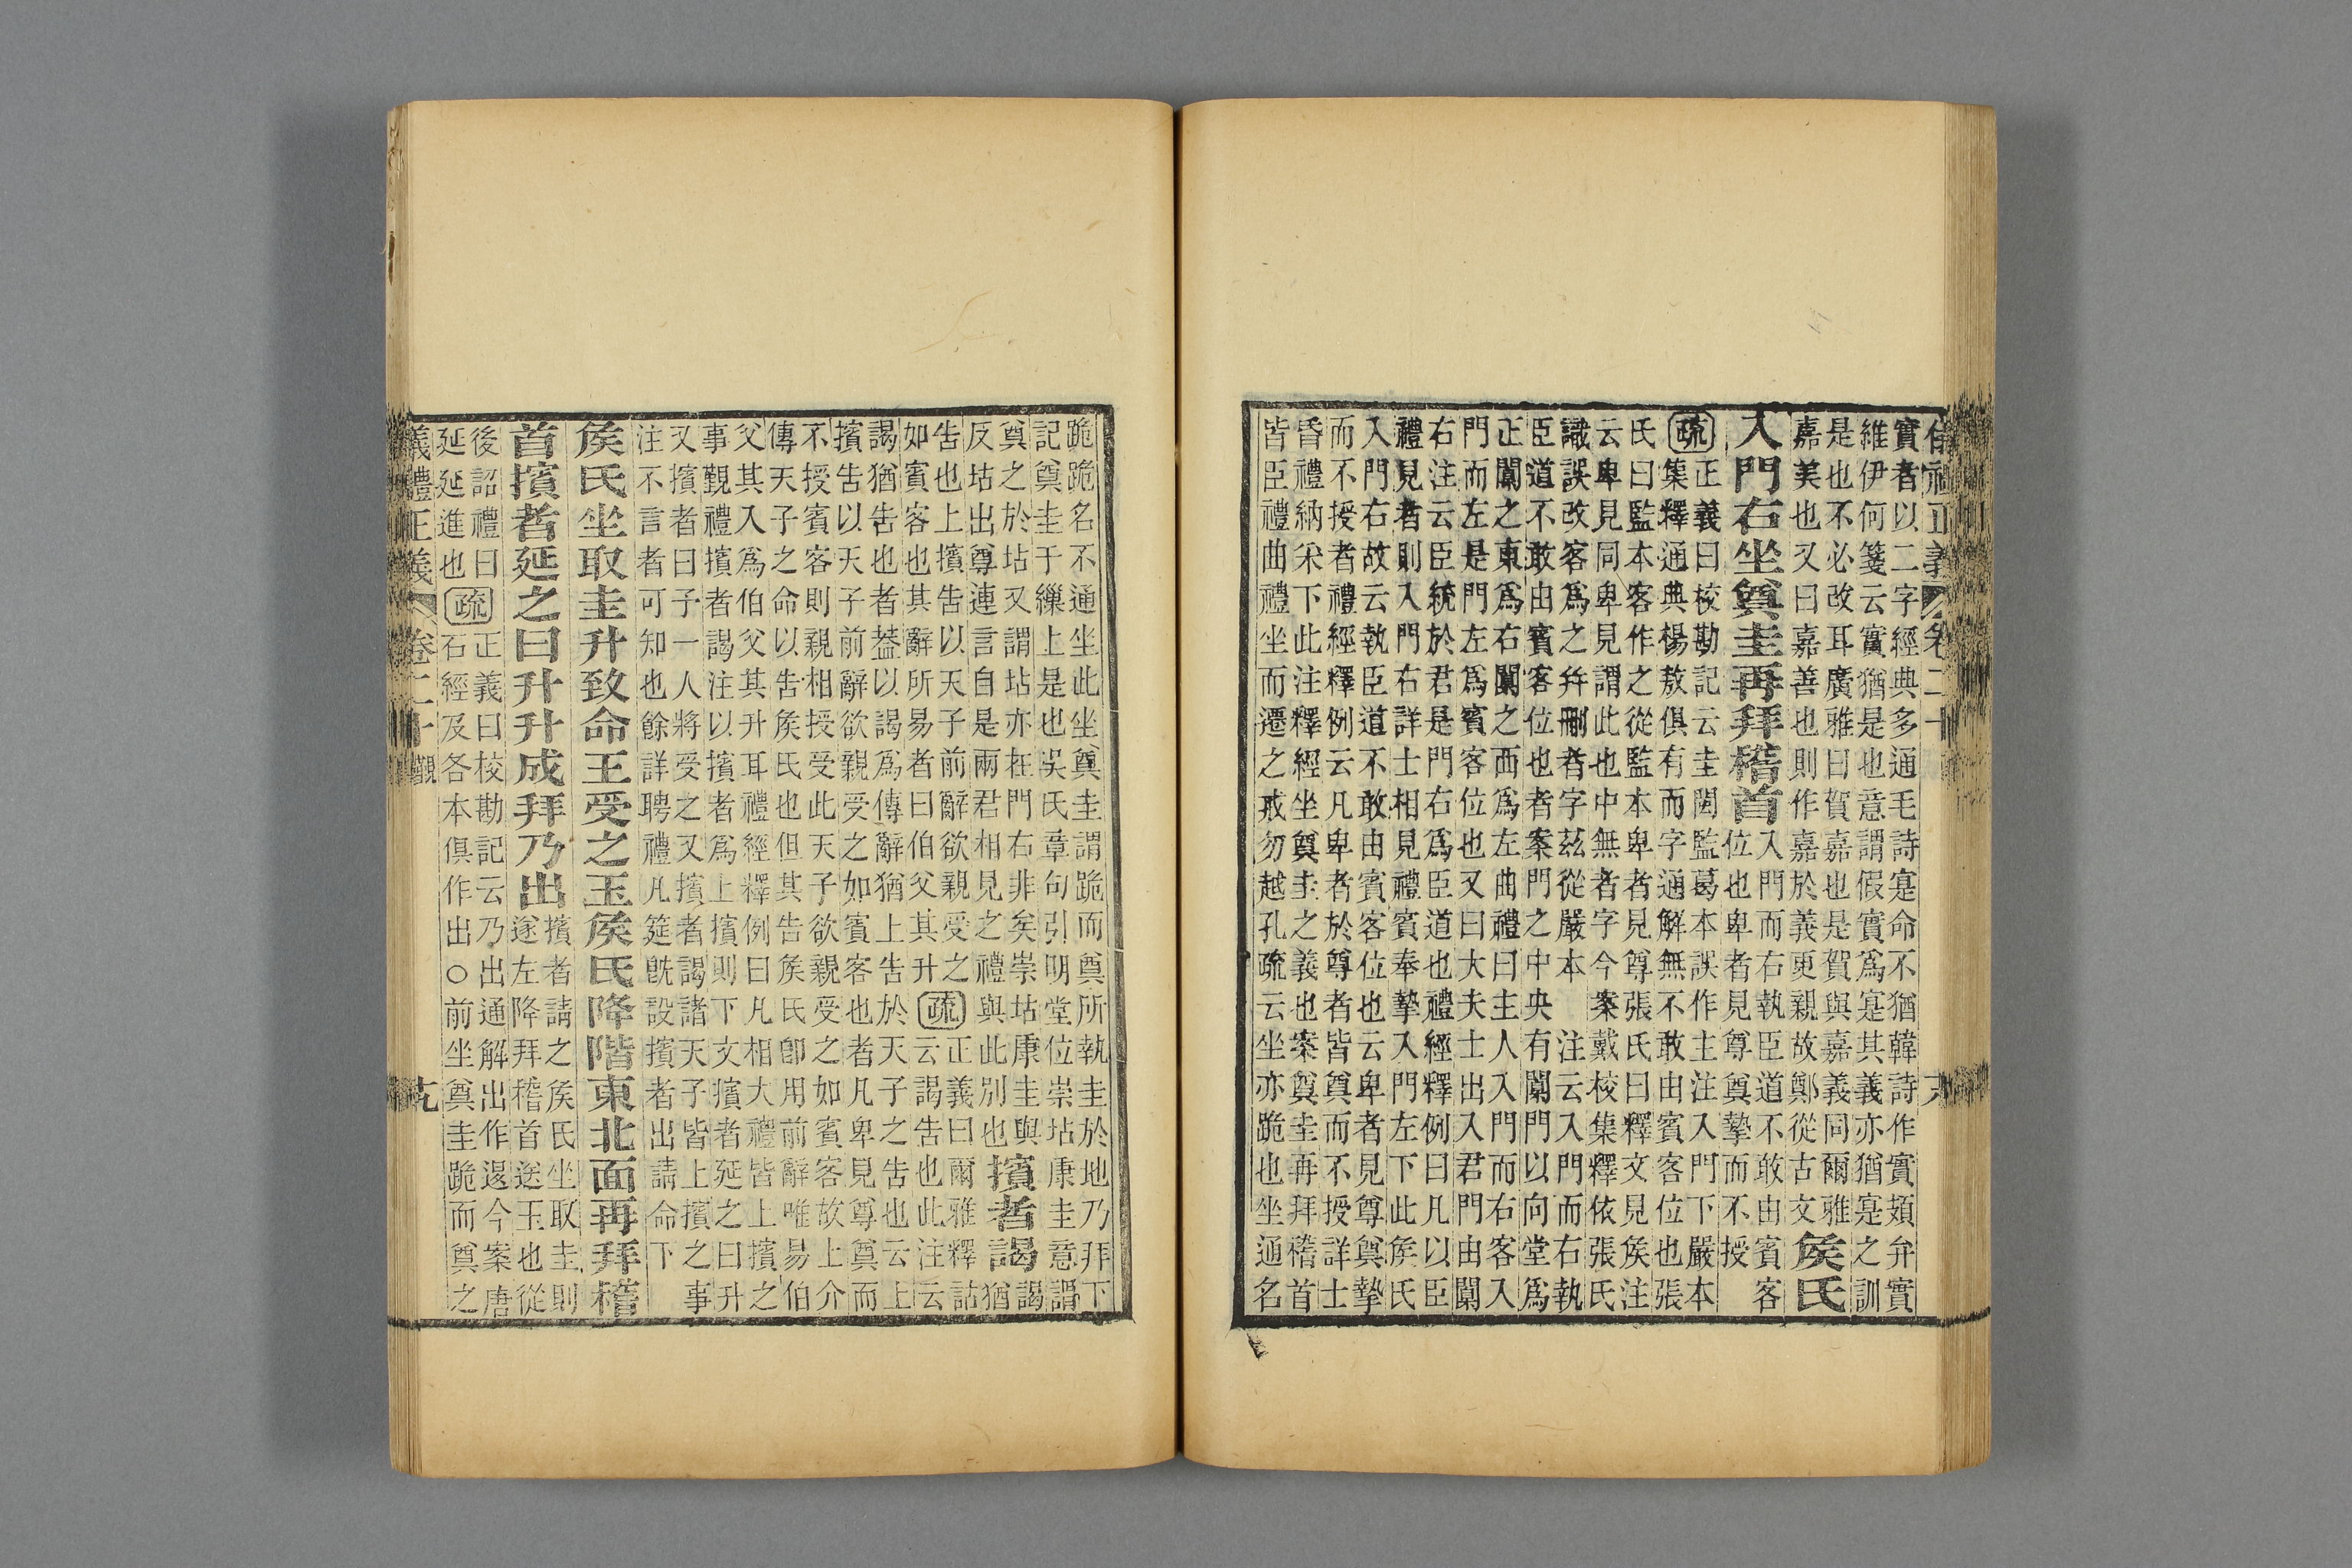 儀禮正義 卷二十
實者以二字經典多通毛詩寔命不猶韓詩作實頍弁實
維伊何箋云實猶是也意謂假實爲寔其義亦猶寔之訓
是也不必改耳廣雅曰賀嘉也是賀與嘉義同爾雅
嘉美也又曰嘉善也則作嘉於義更親故鄭從古文
侯氏
入門右坐奠圭再拜稽首
入門而右執臣道不敢由賓客
位也卑者見尊奠摯而不授
疏正義曰校勘記云圭閎監葛本誤作主注入門下嚴本
集釋通典楊敖俱有而字通解無不敢由賓客位也張
氏曰監本客作之從監本卑者見尊張氏曰釋文見侯注
云卑見同卑見謂此也中無者字今案戴校集釋依張氏
識誤改客爲之幷刪者字茲從嚴本 注云入門而右執
臣道不敢由賓客位也者案門之中央有闑門以向堂爲
正闑之東爲右闑之西爲左曲禮曰主人入門而右客入
門而左是門左爲賓客位也又曰大夫士出入君門由闑
右注云臣統於君是門右爲臣道也禮經釋例曰凡以臣
禮見者則入門右詳士相見禮賓奉摯入門左下此侯氏
入門右故云執臣道不敢由賓客位也云卑者見尊奠摯
而不授者禮經釋例云凡卑者於尊者皆奠而不授詳士
昏禮納采下此注釋經坐奠圭之義也案奠圭再拜稽首
皆臣禮曲禮坐而遷之戒勿越孔疏云坐亦跪也坐通名
跪跪名不通坐此坐奠圭謂跪而奠所執圭於地乃拜下
記奠圭于繅上是也吳氏章句引明堂位崇坫康圭意謂
奠之於坫又謂坫亦在門右非矣崇坫康圭與
反坫出尊連言自是兩君相見之禮與此別也
擯者謁
謁
猶
告也上擯告以天子前辭欲親受之
如賓客也其辭所易者曰伯父其升
疏正義曰爾雅釋詁
云謁告也此注云
謁猶告也者葢以謁爲傳辭猶上告於天子之告也云上
擯告以天子前辭欲親受之如賓客也者凡卑見尊奠而
不授賓客則親相授受此天子欲親受之如賓客故上介
傳天子之命以告侯氏也但其告侯氏卽用前辭唯易伯
父其入爲伯父其升耳禮經釋例曰凡相大禮皆上擯之
事覲禮擯者謁注以擯者爲上擯則下文擯者延之曰升
又擯者曰予一人將受之又擯者謁諸天子皆上擯之事
注不言者可知也餘詳聘禮凡筵旣設擯者出請命下
侯氏坐取圭升致命王受之玉侯氏降階東北面再拜稽
首擯者延之曰升升成拜乃出
擯者請之侯氏坐取圭則
遂左降拜稽首送玉也從
後詔禮曰
延延進也
疏正義曰校勘記云乃出通解出作退今案唐
石經及各本俱作出○前坐奠圭跪而奠之
儀禮正義 卷二十 覲